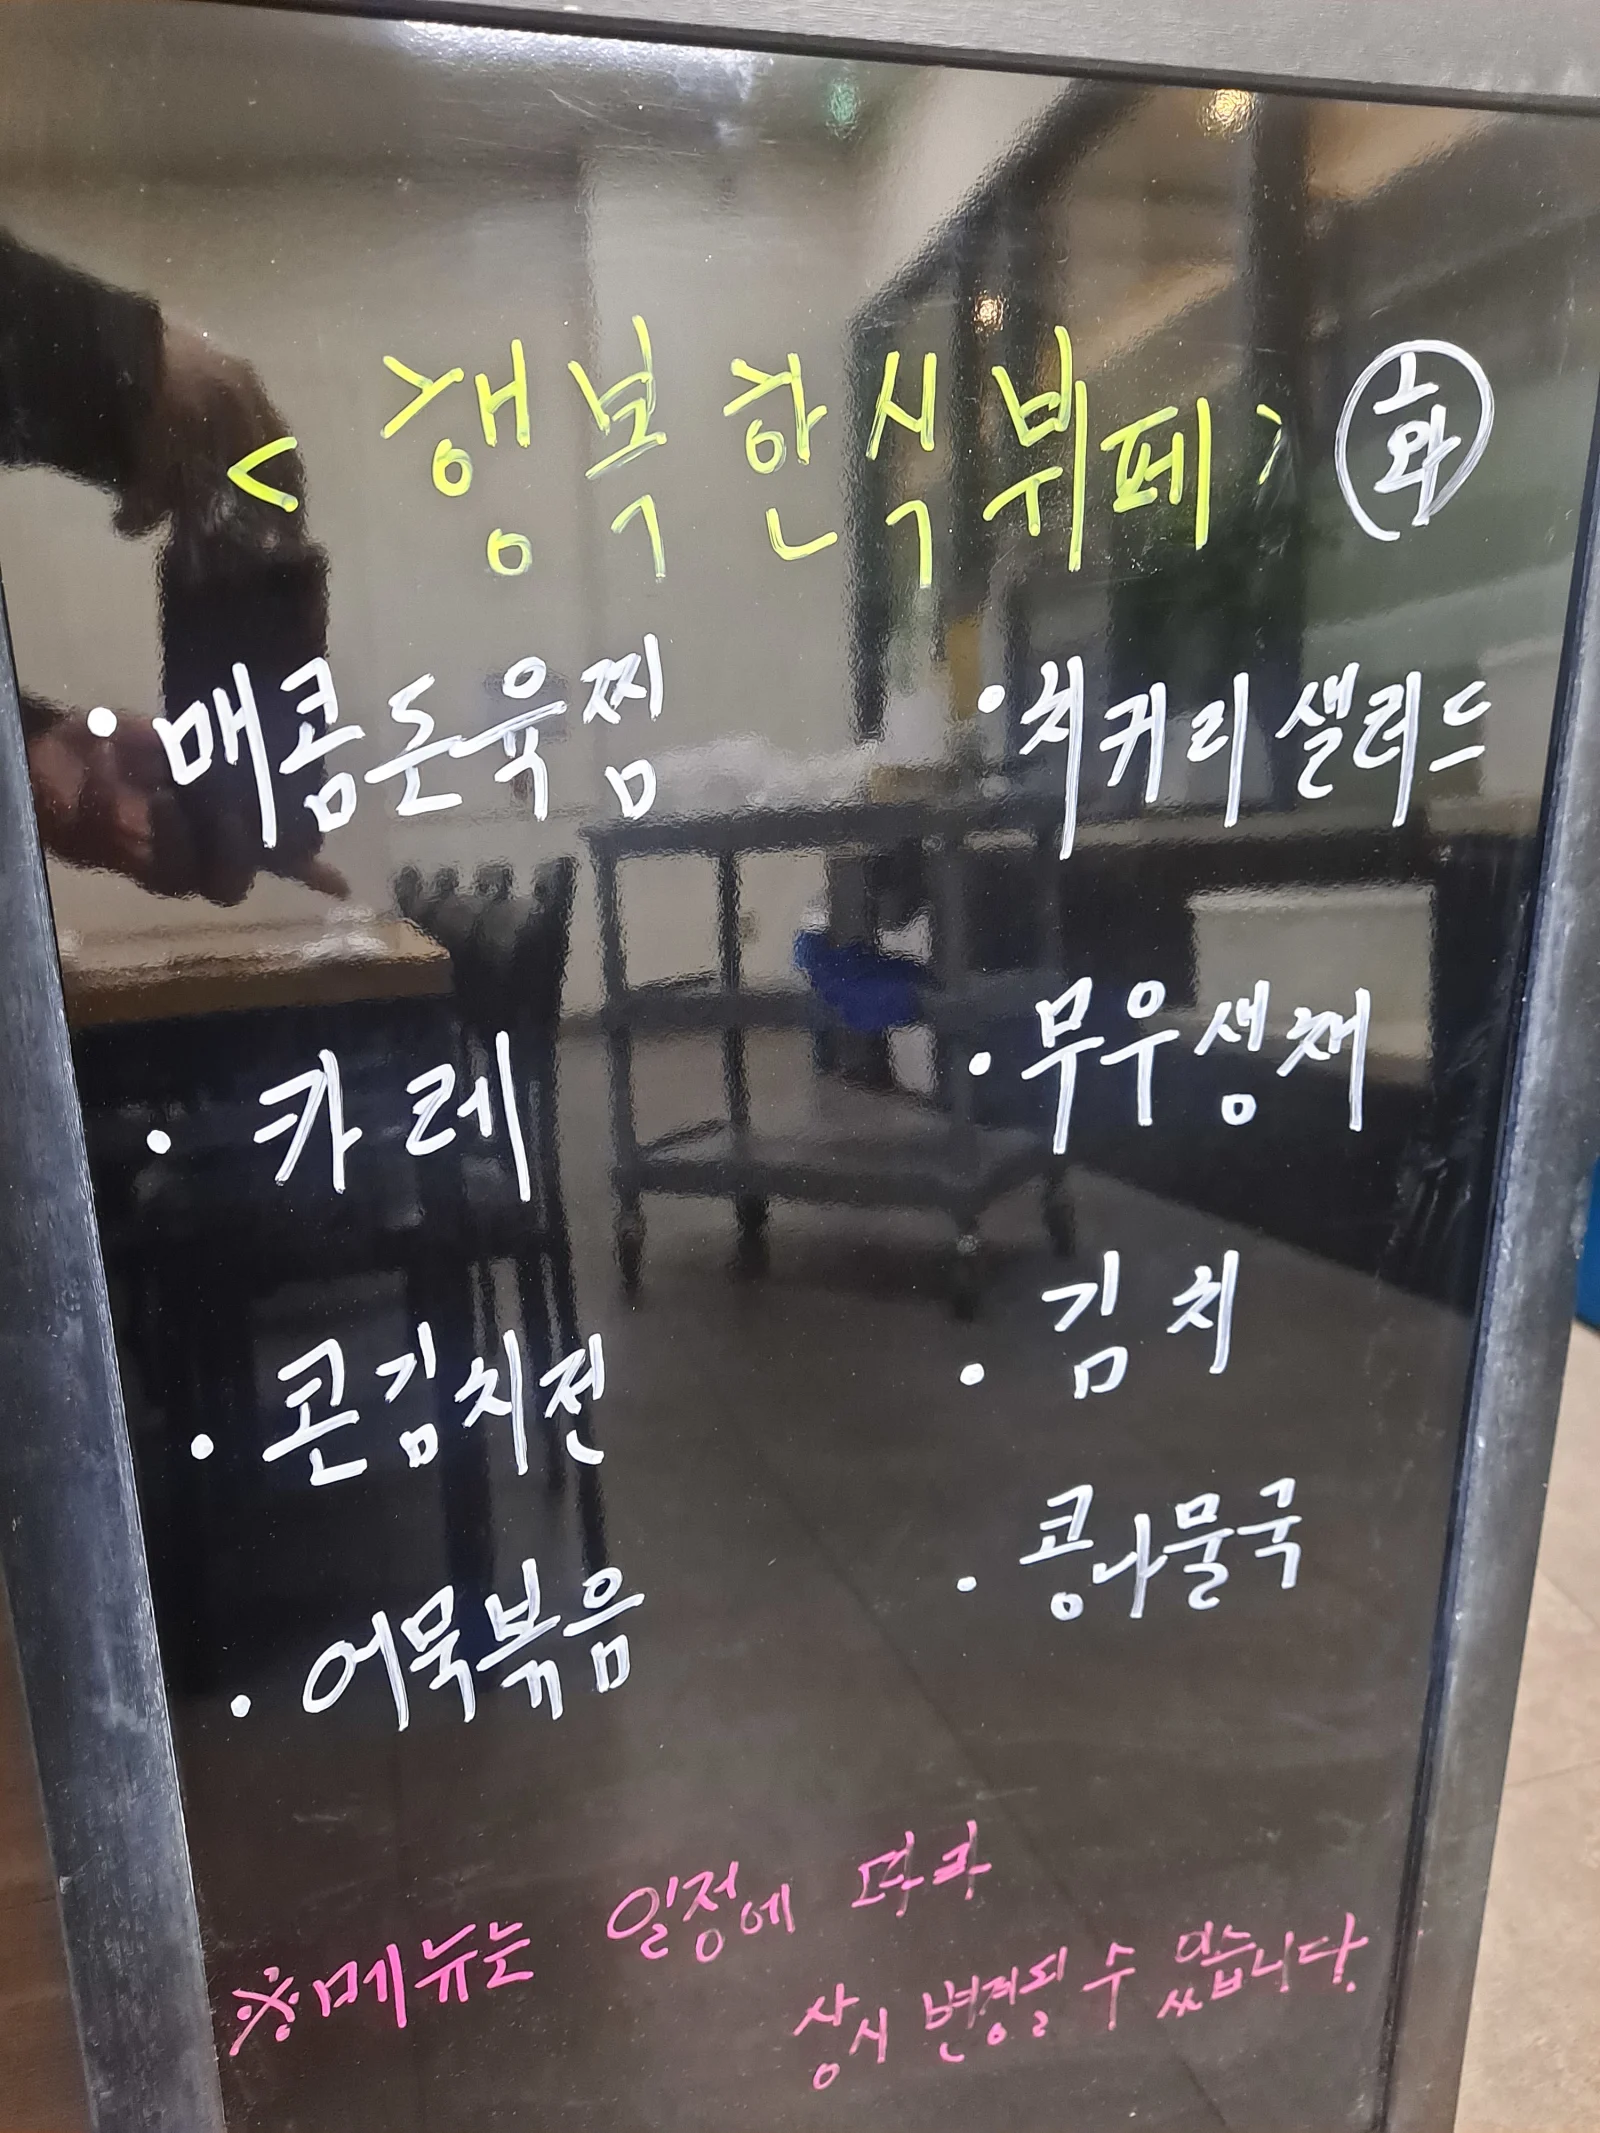 < 행복한식뷔페 > 화
· 매콤돈육찜
· 카레
· 콘김치전
· 어묵볶음
· 치커리샐러드
· 무우생채
· 김치
· 콩나물국
※메뉴는 일정에 따라
상시 변경될 수 있습니다.